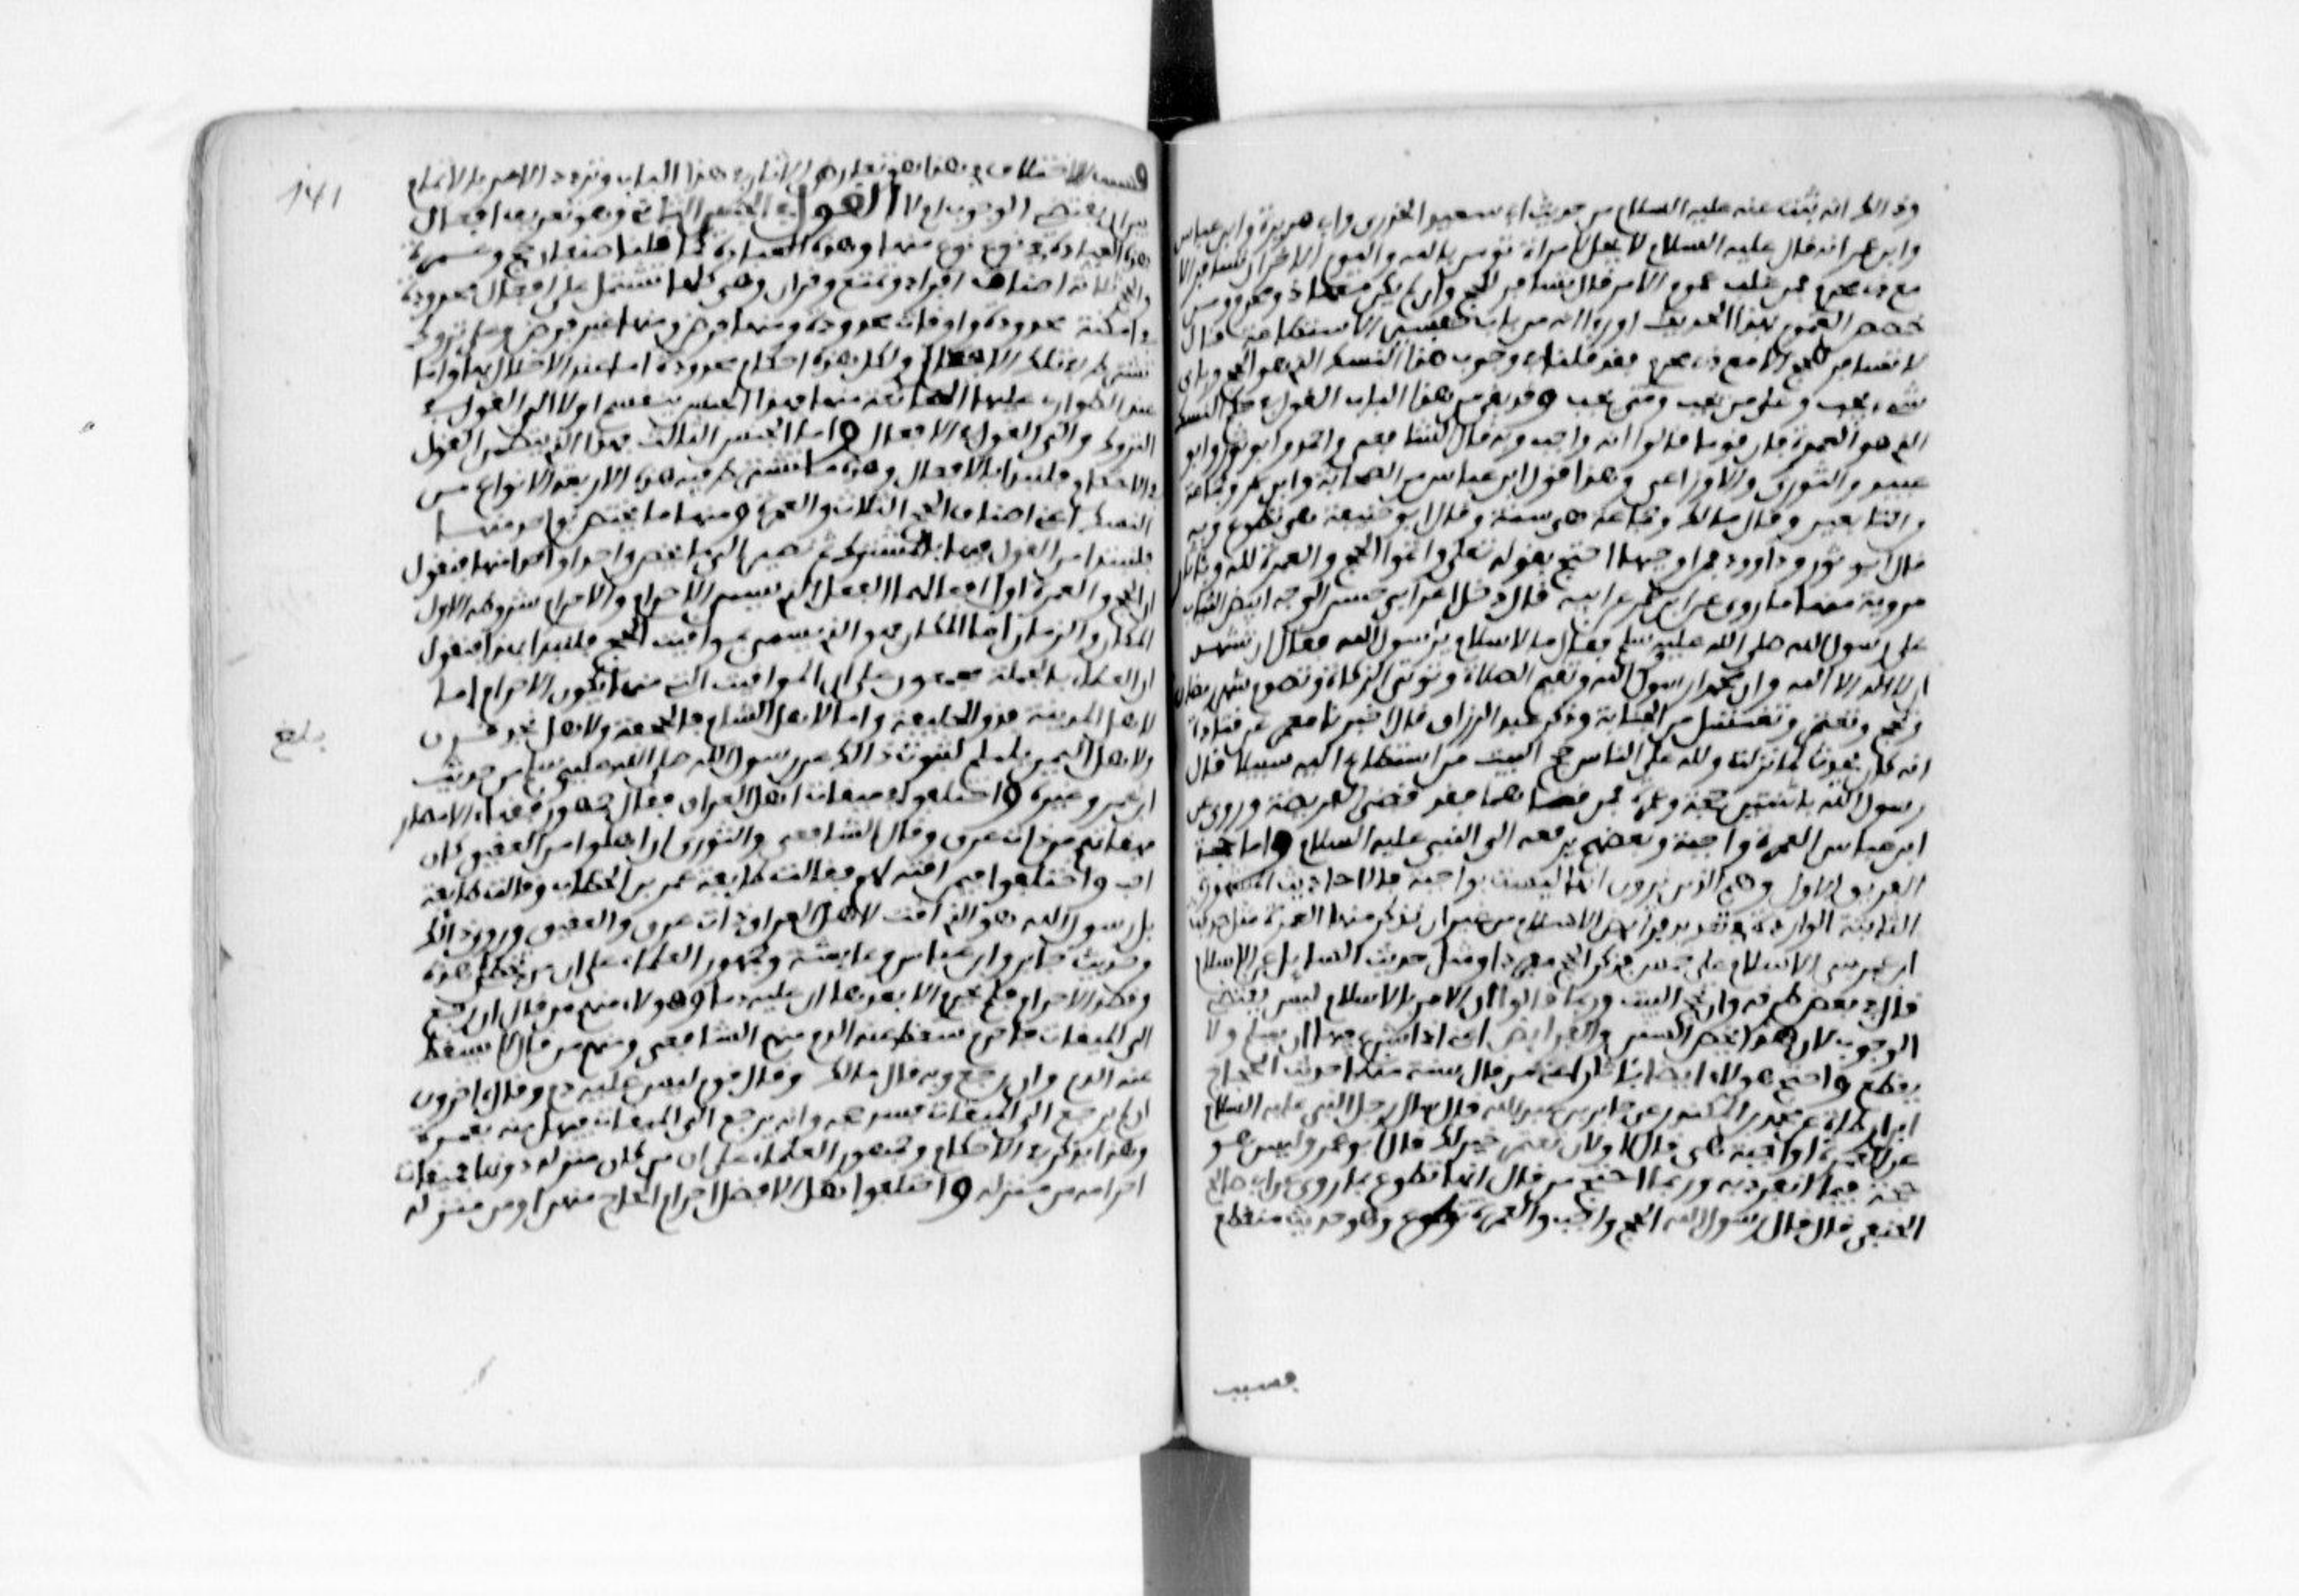 وذالك انه ثبت عنه عليه السلام من حديث ابي سعيد الخدري وابي هريرة وابن عباس
وابن عمر انه قال عليه السلام لا يحل لامراة تومن بالله واليوم الاخر ان تسافر الا
مع ذي محرم فمن غلب عموم الامر قال تسافر للحج وان لم يكن معها ذو محرم ومن
خصص العموم بهذا الحديث او راا انه من باب تفسير الاستطاعة قال
لا تسافر للحج الا مع ذي محرم فقد قلنا في وجوب هذا النسك الذي هو الحج وباي
شيء يجب وعلى من يجب ومتى يجب وقد بقي من هذا الباب القول في حكم النسك
الذي هو العمرة فان قوما قالوا انه واجب وبه قال الشافعي واحمد وابو ثور وابو
عبيد والثوري والاوزاعي وهو قول ابن عباس من الصحابة وابن عمر وجماعة
من التابعين وقال مالك وجماعة هي سنة وقال ابو حنيفة هي تطوع وبه
قال ابو ثور وداوود فمن اوجبها احتج بقوله تعالى واتموا الحج والعمرة لله وباثار
مروية منها ما روي عن ابن عمر عن ابيه قال دخل اعرابي حسن الوجه ابيض الثياب
على رسول الله صلى الله عليه وسلم فقال ما الاسلام يا رسول الله فقال ان تشهد
ان لا اله الا الله وان محمدا رسول الله وتقيم الصلاة وتوتي الزكاة وتصوم شهر رمضان
وتحج وتعتمر وتغتسل من الجنابة وذكر عبد الرزاق قال اخبرنا معمر عن قتادة
انه كان يحدث لما نزلت ولله على الناس حج البيت من استطاع اليه سبيلا قال
رسول الله باثنتين حجة وعمرة فمن قضاهما فقد قضى الفريضة وروي عن
ابن عباس العمرة واجبة وبعضهم يرفعه الى النبي عليه السلام واما حجة
الفريق الاول وهم الذين يرون انها ليست بواجبة فالاحاديث المشهورة
الثابتة الواردة في تعديد فرايض الاسلام من غير ان يذكر منها العمرة مثل حديث
ابن عمر بني الاسلام على خمس فذكر الحج مفردا ومثل حديث السايل عن الاسلام
فان في بعض طرقه وان تحج البيت وربما قالوا ان الامر بالاتمام ليس يقتضي
الوجوب لان هذا يخص السنن والفرايض اعني اذا شرع فيها ان يتم ولا
يقطع واحتج هولاء ايضا باثار اعني من قال سنة منها حديث الحجاج
ابن ارطاة عن محمد بن المنكدر عن جابر بن عبد الله قال سال رجل النبي عليه السلام
عن العمرة اواجبة هي قال لا ولان تعتمر خير لك قال ابو عمر وليس هو
حجة فيما انفرد به وربما احتج من قال انها تطوع بما روي عن ابي صالح
الحنفي قال قال رسول الله الحج واجب والعمرة تطوع وهو حديث منقطع
فسبب
141
فسبب الاختلاف في هذا هو تعارض الاثار في هذا الباب وتردد الامر بالاتمام
بين ان يقتضي الوجوب ام لا القول في الجنس الثاني وهو تعريف افعال
هذه العبادة في نوع نوع منها وهذه العبادة كما قلنا صنفان حج وعمرة
والحج ثلاثة اصناف افراد وتمتع وقران وهي كلها تشتمل على افعال محدودة
في امكنة محدودة واوقات محدودة ومنها فرض ومنها غير فرض وعلى تروك
تشترط في تلك الافعال ولكل هذه احكام محدودة اما عند الاخلال بها واما
عند الطوارئ عليها المانعة منها فهذا الجنس ينقسم اولا الى القول في
التروك والى القول في الافعال واما الجنس الثالث فهو الذي يتضمن القول
في الاحكام فلنبدا بالافعال وهذه منها ما تشترك فيه هذه الاربعة الانواع من
النسك اعني اصناف الحج الثلاث والعمرة ومنها ما يختص بواحد منها
فلنبدا من القول فيها بالمشترك ثم نصير الى ما يخص واحدا واحدا منها فنقول
ان الحج والعمرة اول افعالهما الفعل الذي يسمى الاحرام والاحرام شروطه الاول
المكان والزمان اما المكان فهو الذي يسمى مواقيت الحج فلنبدا بهذا فنقول
ان العلماء بالجملة مجمعون على ان المواقيت التي منها يكون الاحرام اما
لاهل المدينة فذو الحليفة واما لاهل الشام فالجحفة ولاهل نجد قرن
ولاهل اليمن يلملم لثبوت ذالك عن رسول الله صلى الله عليه وسلم من حديث
بلغ
ابن عمر وغيره واختلفوا في ميقات اهل العراق فقال جمهور فقهاء الامصار
ميقاتهم من ذات عرق وقال الشافعي والثوري ان اهلوا من العقيق كان
احب واختلفوا فيمن اقته لهم فقالت طايفة عمر بن الخطاب وقالت طايفة
بل رسول الله هو الذي اقت لاهل العراق ذات عرق والعقيق وروي ذالك
من حديث جابر وابن عباس وعايشة وجمهور العلماء على ان من يخطي هذه
وقصد الاحرام فلم يحرم الا بعدها ان عليه دما وهولاء منهم من قال ان رجع
الى الميقات فاحرم سقط عنه الدم منهم الشافعي ومنهم من قال لا يسقط
عنه الدم وان رجع وبه قال مالك وقال قوم ليس عليه دم وقال اخرون
ان لم يرجع الى الميقات فسد حجه وانه يرجع الى الميقات فيهل منه بعمرة
وهذا يذكر في الاحكام وجمهور العلماء على ان من كان منزله دونها فميقات
احرامه من منزله واختلفوا هل الافضل احرام الحاج منها او من منزله